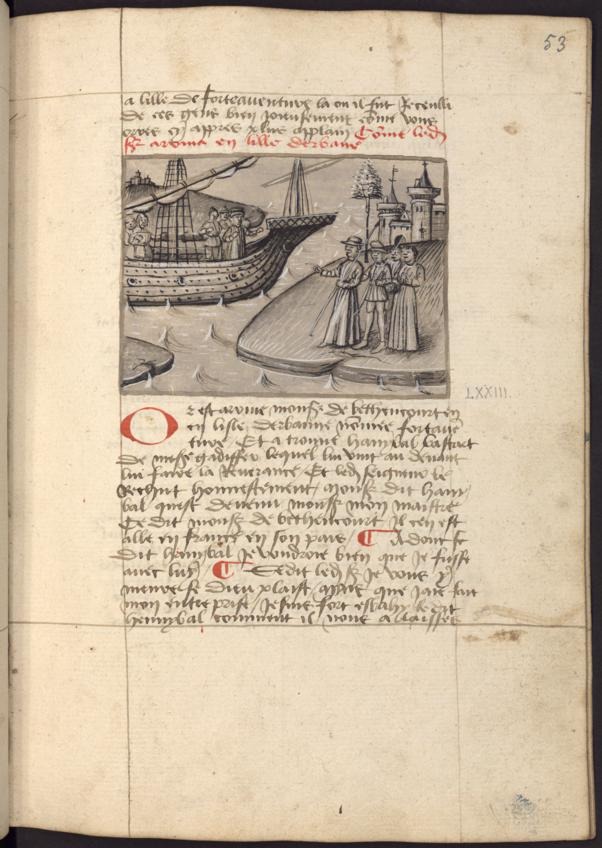 53
a lille de forteaventure la ou il fut Recuilli
de ces gens bien joieusement come vous
orres cy appres plus aplain Come led
sr ariva en lille derbane
LXXIII.
Or est arive monsr de bethencourt en
en lisle derbanne nomee fortave
ture Et a trouve hanybal bastart
de messe gadiffer lequel lui vint au devant
lui faire la Reverance Et led seigneur le
Rechut honnestement monsr dit hany
bal quest devenu monsr mon maistre
Ce dit monsr de bethencourt Il cen est
alle en france en son pais Adont se
dit hanybal Je vondroie bien que Je fusse
avec luy Ce dit led sr Je vous y
menre se dieu plaist mais que jaie fait
mon entreprise Je suis fort esbahy ce dit
hennybal comment il vous a laisses